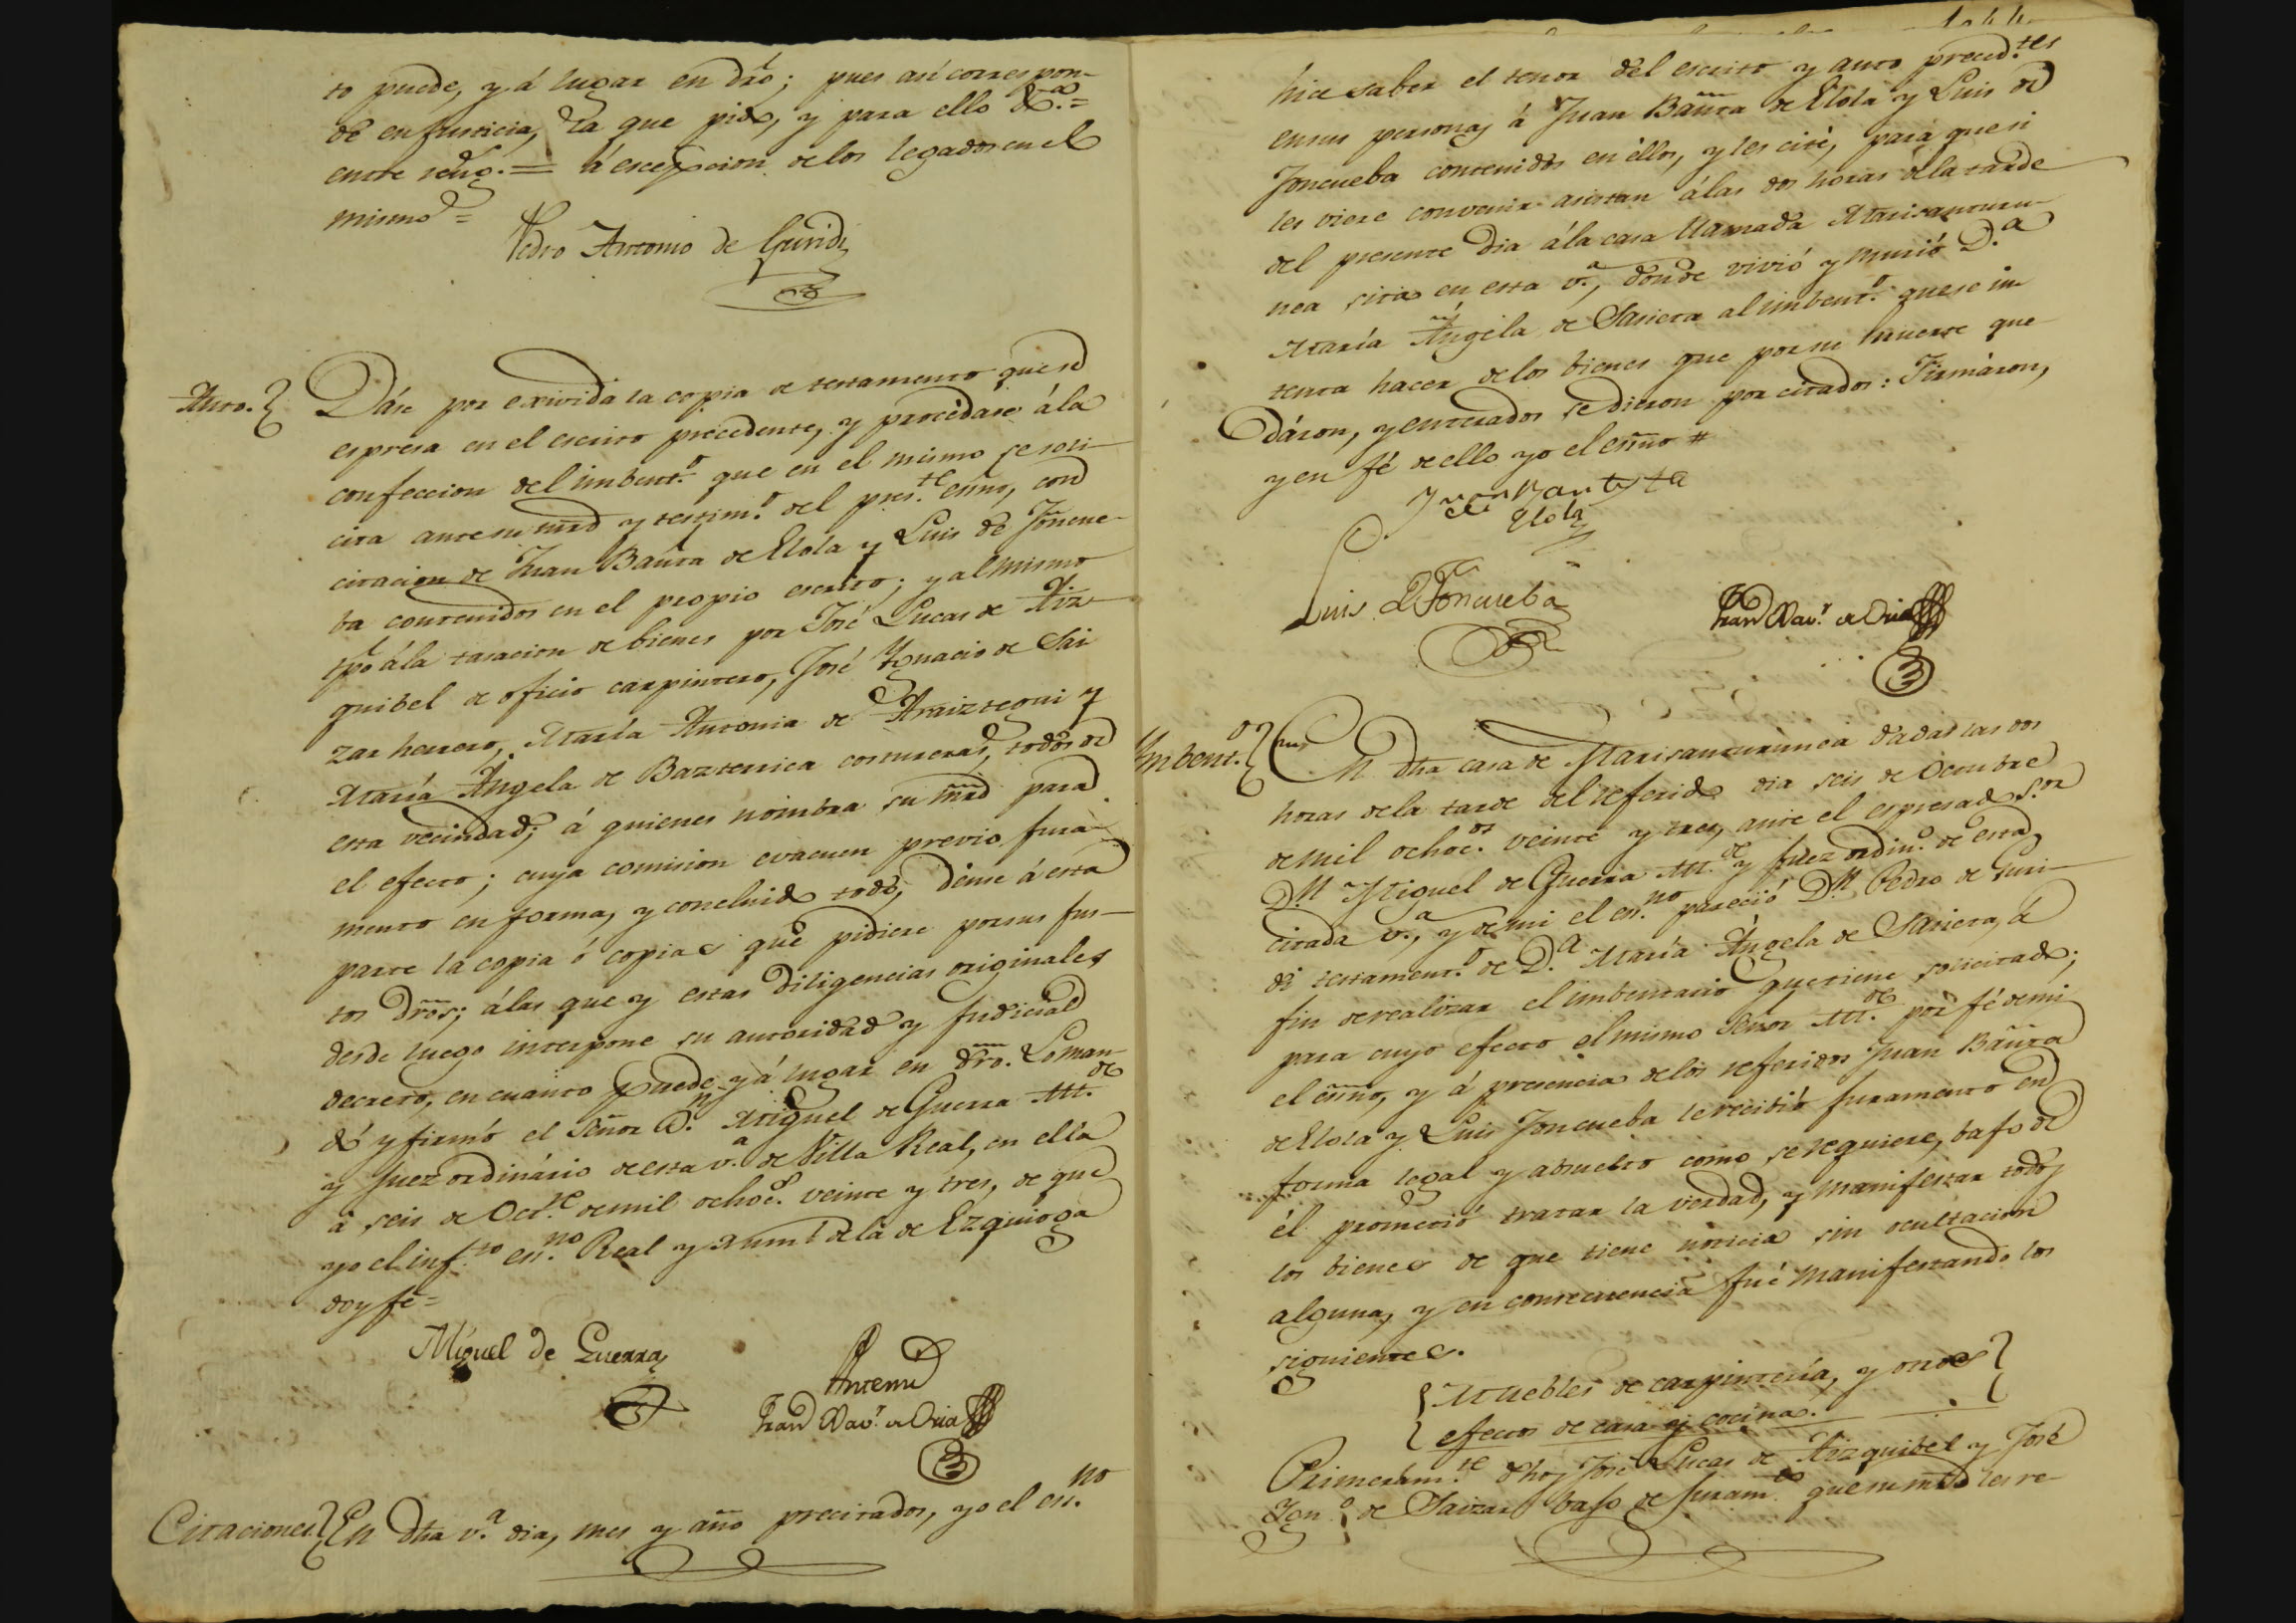 to puede, y á lugar en dro; pues así correspon-
de en justicia, la que pide, y para ello &.ª =
entre reng.s = á excepcion de los legados en el
mismo =
Pedro Antonio de Guridi
Auto. Dáse por exivida la copia de testamento que se
espresa en el escrito precedente, y procédase á la
confeccion del imbent.º que en el mismo se soli-
cita ante su mrd y testim.º del pres.te esnno, con
citacion de Juan Bauta de Elola y Luis de Joncue-
ba contenidos en el propio escrito; y al mismo
tpo á la tasacion de bienes por José Lucas de Aiz-
quibel de oficio carpintero, José Ygnacio de Sai
zar herrero, María Antonia de Araiztegui y
María Ángela de Bazterrica costureras, todos de
esta vecindad; á quienes nombra su mrd para
el efecto; cuya comision evacuen previo jura-
mento en forma, y concluido todo, dénse á esta
parte la copia ó copias que pidiere por sus jus-
tos dros; á las que y estas diligencias originales
desde luego interpone su autoridad y judicial
decreto, en cuanto puede y á lugar en dro. Lo man-
dó y firmó el Señor D.n Miguel de Guerra Al.de
y Juez ordinário de esta v.ª de Villa Real, en ella
á seis de Oct.e de mil ochoc.s veinte y tres, de que
yo el inf.to es.no Real y Numl de la de Ezquioga
doy fe =
Miguel de Guerra
Antemi
Fran Xav.r de Oria
Citaciones. En dha v.ª dia, mes y año precitados, yo el es.no
hice saber el tenor del escrito y auto preced.tes
en sus personas á Juan Bauta de Elola y Luis de
Joncueba contenidos en éllos, y les cité, para que si
les viere convenir asistan á las dos horas de la tarde
del presente dia á la casa llamada Marisanturu-
nea sita en esta v.ª, donde vivió y murió D.ª
María Ángela de Sariera al imbent.º que se in
tenta hacer de los bienes que por su muerte que
dáron, y enterados se dieron por citados: Firmáron,
y en fé de ello yo el esnno #
Juan Bautista
Elola
Luis de Joncueba
Fran Xav.r de Oria
Ymbent.º En dha casa de Marisanturunea dadas las dos
horas de la tarde del referido dia seis de Octubre
de mil ochoc.os veinte y tres, ante el espresado S.or
D.n Miguel de Guerra Al.de y Juez ordin.º de esta
citada v.ª, y de mi el es.no pareció D.n Pedro de Guri-
di testament.º de D.ª María Ángela de Sariera, á
fin de realizar el imbentario que tiene solicitado;
para cuyo efecto el mismo Señor Al.de por fé de mi
el esnno, y á presencia de los referidos Juan Bauta
de Elola y Luis Joncueba le recibió juramento en
forma legal y absuelto como se requiere, bajo de
él prometió tratar la verdad, y manifestar todos
los bienes de que tiene noticia sin ocultacion
alguna, y en consecuencia fué manifestando los
siguientes.
Muebles de carpintería, y otros
efectos de casa y cocina.
Primeram.te dhos José Lucas de Aizquibel y José
Ign.º de Saizar bajo de juram.to que su mrd les re-